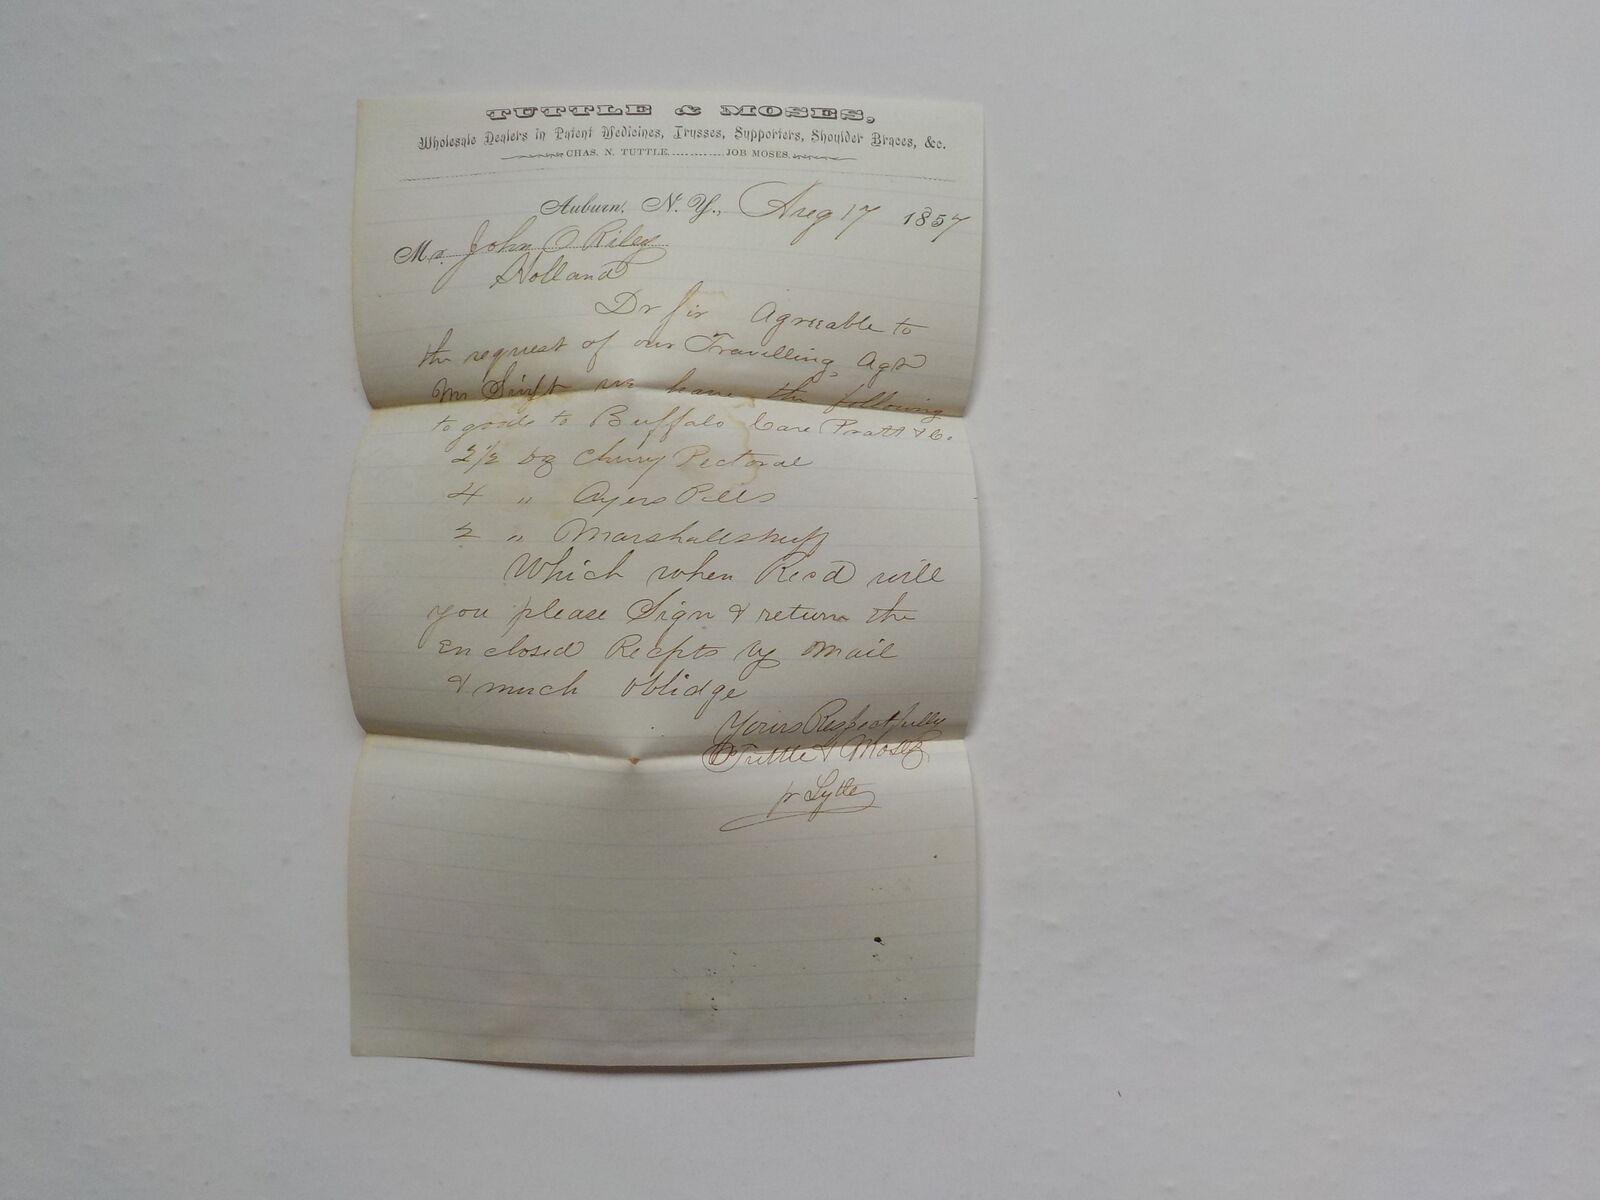 TUTTLE & MOSES,
Wholesale Dealers in Patent Medicines, Trusses, Supporters, Shoulder Braces, &c.
CHAS. N. TUTTLE..........JOB MOSES.
Auburn, N. Y., Aug 17 1857
Mr. John O Riley
Holland
Dr Sir Agreeable to
the request of our Travelling Agt
Mr Swift we have the following
to goods to Buffalo Care Pratt & Co.
2½ dz Cherry Pectoral
4 " Ayers Pills
2 " Marshalls snuff
Which when Recd will
you please Sign & return the
Enclosed Recpts by Mail
& much oblidge
Yours Respectfully
Tuttle & Moses
pr Lytle